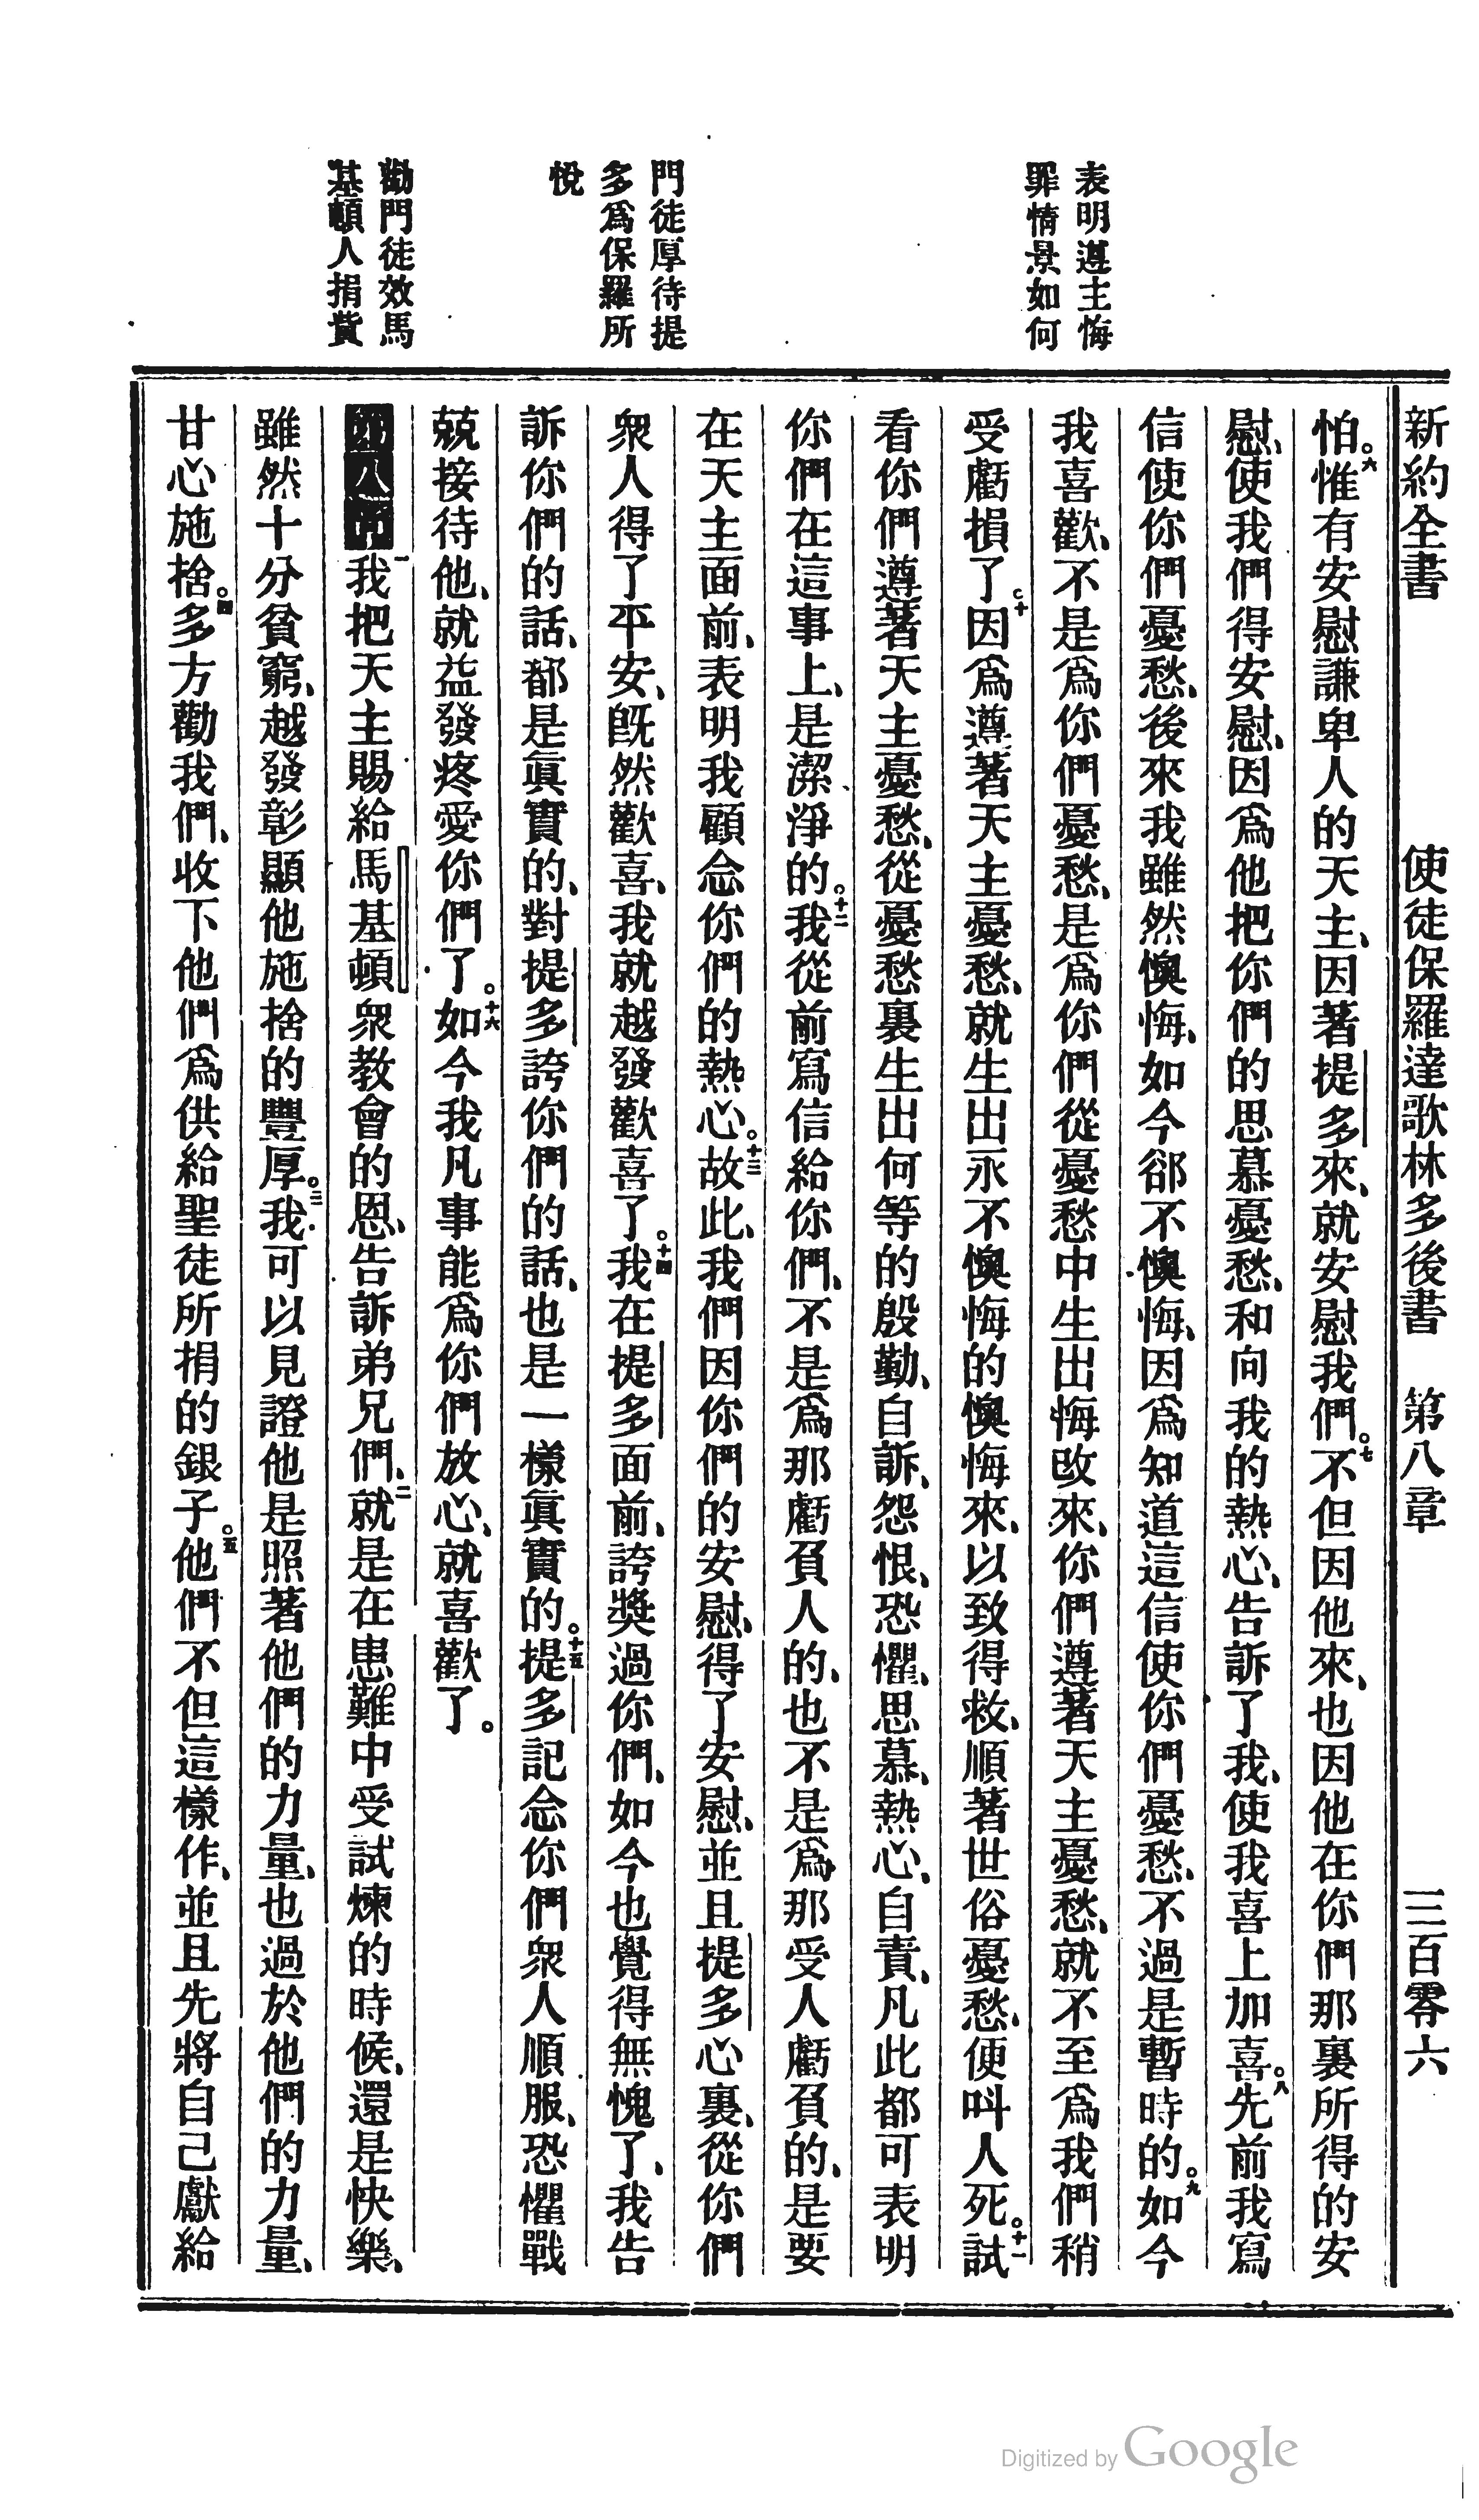 新約全書　使徒保羅達歌林多後書　第八章　三百零六
表明遵主悔
罪情景如何
門徒厚待提
多爲保羅所
悅
勸門徒效馬
基頓人捐貲
怕。六惟有安慰謙卑人的天主、因著提多來、就安慰我們。七不但因他來、也因他在你們那裏所得的安
慰、使我們得安慰、因爲他把你們的思慕憂愁、和向我的熱心、告訴了我、使我喜上加喜。八先前我寫
信使你們憂愁、後來我雖然懊悔、如今卻不懊悔、因爲知道這信使你們憂愁、不過是暫時的。九如今
我喜歡、不是爲你們憂愁、是爲你們從憂愁中生出悔改來、你們遵著天主憂愁、就不至爲我們稍
受虧損了。十因爲遵著天主憂愁、就生出永不懊悔的懊悔來、以致得救、順著世俗憂愁、便呌人死。十一試
看你們遵著天主憂愁、從憂愁裏生出何等的殷勤、自訴、怨恨、恐懼、思慕、熱心、自責、凡此都可表明
你們在這事上、是潔淨的。十二我從前寫信給你們、不是爲那虧負人的、也不是爲那受人虧負的、是要
在天主面前、表明我顧念你們的熱心。十三故此、我們因你們的安慰、得了安慰、並且提多心裏、從你們
衆人得了平安、旣然歡喜、我就越發歡喜了。十四我在提多面前、誇獎過你們、如今也覺得無愧了、我告
訴你們的話、都是眞實的、對提多誇你們的話、也是一樣眞實的。十五提多記念你們衆人順服、恐懼戰
兢接待他、就益發疼愛你們了。十六如今我凡事能爲你們放心、就喜歡了。
第八章一我把天主賜給馬基頓衆教會的恩、告訴弟兄們、二就是在患難中受試煉的時候、還是快樂、
雖然十分貧窮、越發彰顯他施捨的豐厚。三我可以見證他是照著他們的力量、也過於他們的力量、
甘心施捨。四多方勸我們、收下他們爲供給聖徒所捐的銀子。五他們不但這樣作、並且先將自己獻給
Digitized by Google